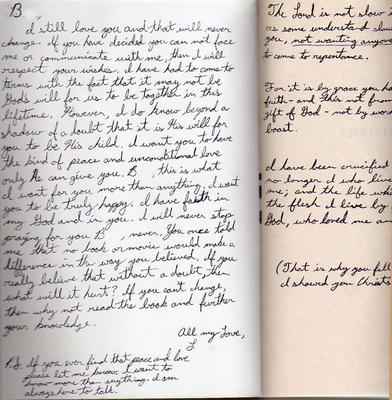 B
I still love you and that will never
change. If you have decided you can not face
me or communicate with me, then I will
respect your wishes. I have had to come to
terms with the fact that it may not be
God's will for us to be together in this
lifetime. However, I do know beyond a
shadow of a doubt that it is His will for
you to be His child. I want you to have
the kind of peace and unconditional love
only He can give you. B , this is what
I want for you more than anything; I want
you to be truly happy. I have faith in
my God and in you. I will never stop
praying for you B , never. You once told
me that no book or movie would make a
difference in the way you believed. If you
really believe that without a doubt, then
what will it hurt? If you can't change,
then why not read the book and further
your knowledge.
All my love,
L
P.S. If you ever find that peace and love
please let me know. I want to
know more than anything. I am
always here to talk.
The Lord is not slow i
as some understand slow
you, not wanting anyone
to come to repentance.
For it is by grace you ha
faith - and this not from
gift of God - not by wor
boast.
I have been crucified
no longer I who live
me; and the life whic
the flesh I live by
God, who loved me an
(That is why you fell
I showed you Christ